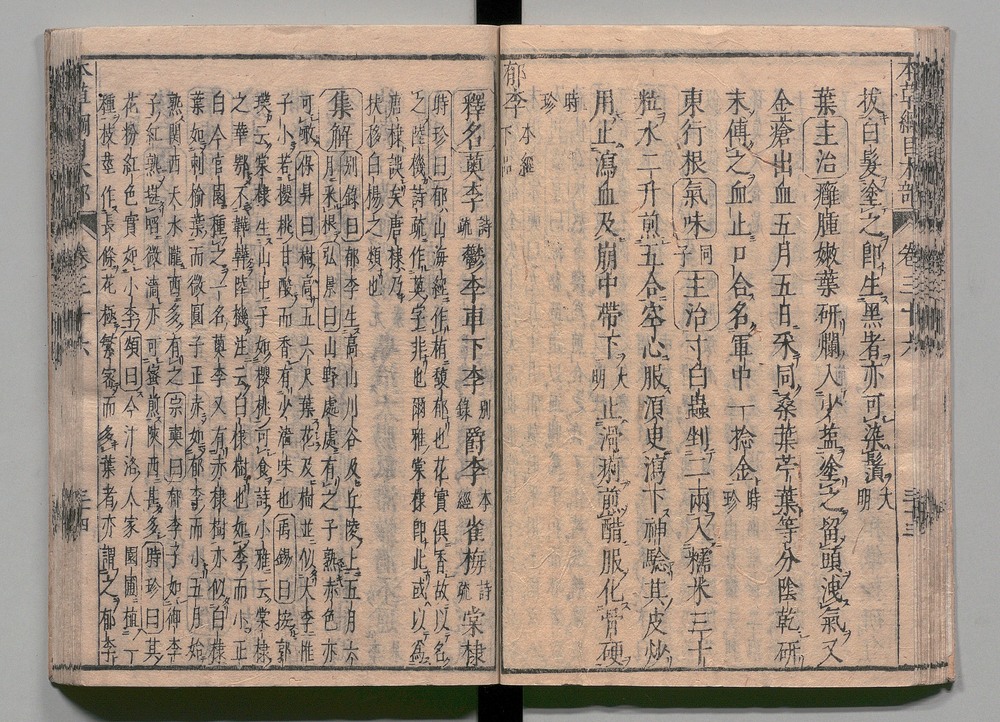 本草綱目木部 卷三十六 三十三
拔白髮塗之卽生黑者亦可染鬚大明
葉主治癰腫嫩葉研爛入少鹽塗之留頭洩氣又
金瘡出血五月五日采同桑葉苧葉等分陰乾研
末傅之血止口合名軍中一捻金時珍
東行根氣味同子主治寸白蟲剉二兩入糯米三十
粒水二升煎五合空心服須臾瀉下神驗其皮炒
用止瀉血及崩中帶下大明止滑痢煎醋服化骨硬
時珍
郁李本經下品
釋名薁李詩疏鬱李車下李別錄爵李本經雀梅詩疏棠棣
時珍曰郁山海經作栯馥郁也花實俱香故以名
之陸機詩疏作薁字非也爾雅棠棣卽此或以爲
唐棣誤矣唐棣乃
扶栘白楊之類也
集解別錄曰郁李生高山川谷及丘陵上五月六
月采根弘景曰山野處處有之子熟赤色亦
可啖保昇曰樹高五六尺葉花及樹並似大李惟
子小若櫻桃甘酸而香有少濇味也禹錫曰按郭
璞云棠棣生山中子如櫻桃可食詩小雅云棠棣
之華鄂不韡韡陸機注云白棣樹也如李而小正
白今官園種之一名薁李又有赤棣樹亦似白棣
葉如刺榆葉而微圓子正赤如郁李而小五月始
熟關西天水隴西多有之宗奭曰郁李子如御李
子紅熟堪啗微濇亦可蜜煎陝西甚多時珍曰其
花粉紅色實如小李頌曰今汴洛人家園圃植一
種枝莖作長條花極繁密而多葉者亦謂之郁李
卷三十六 三十四